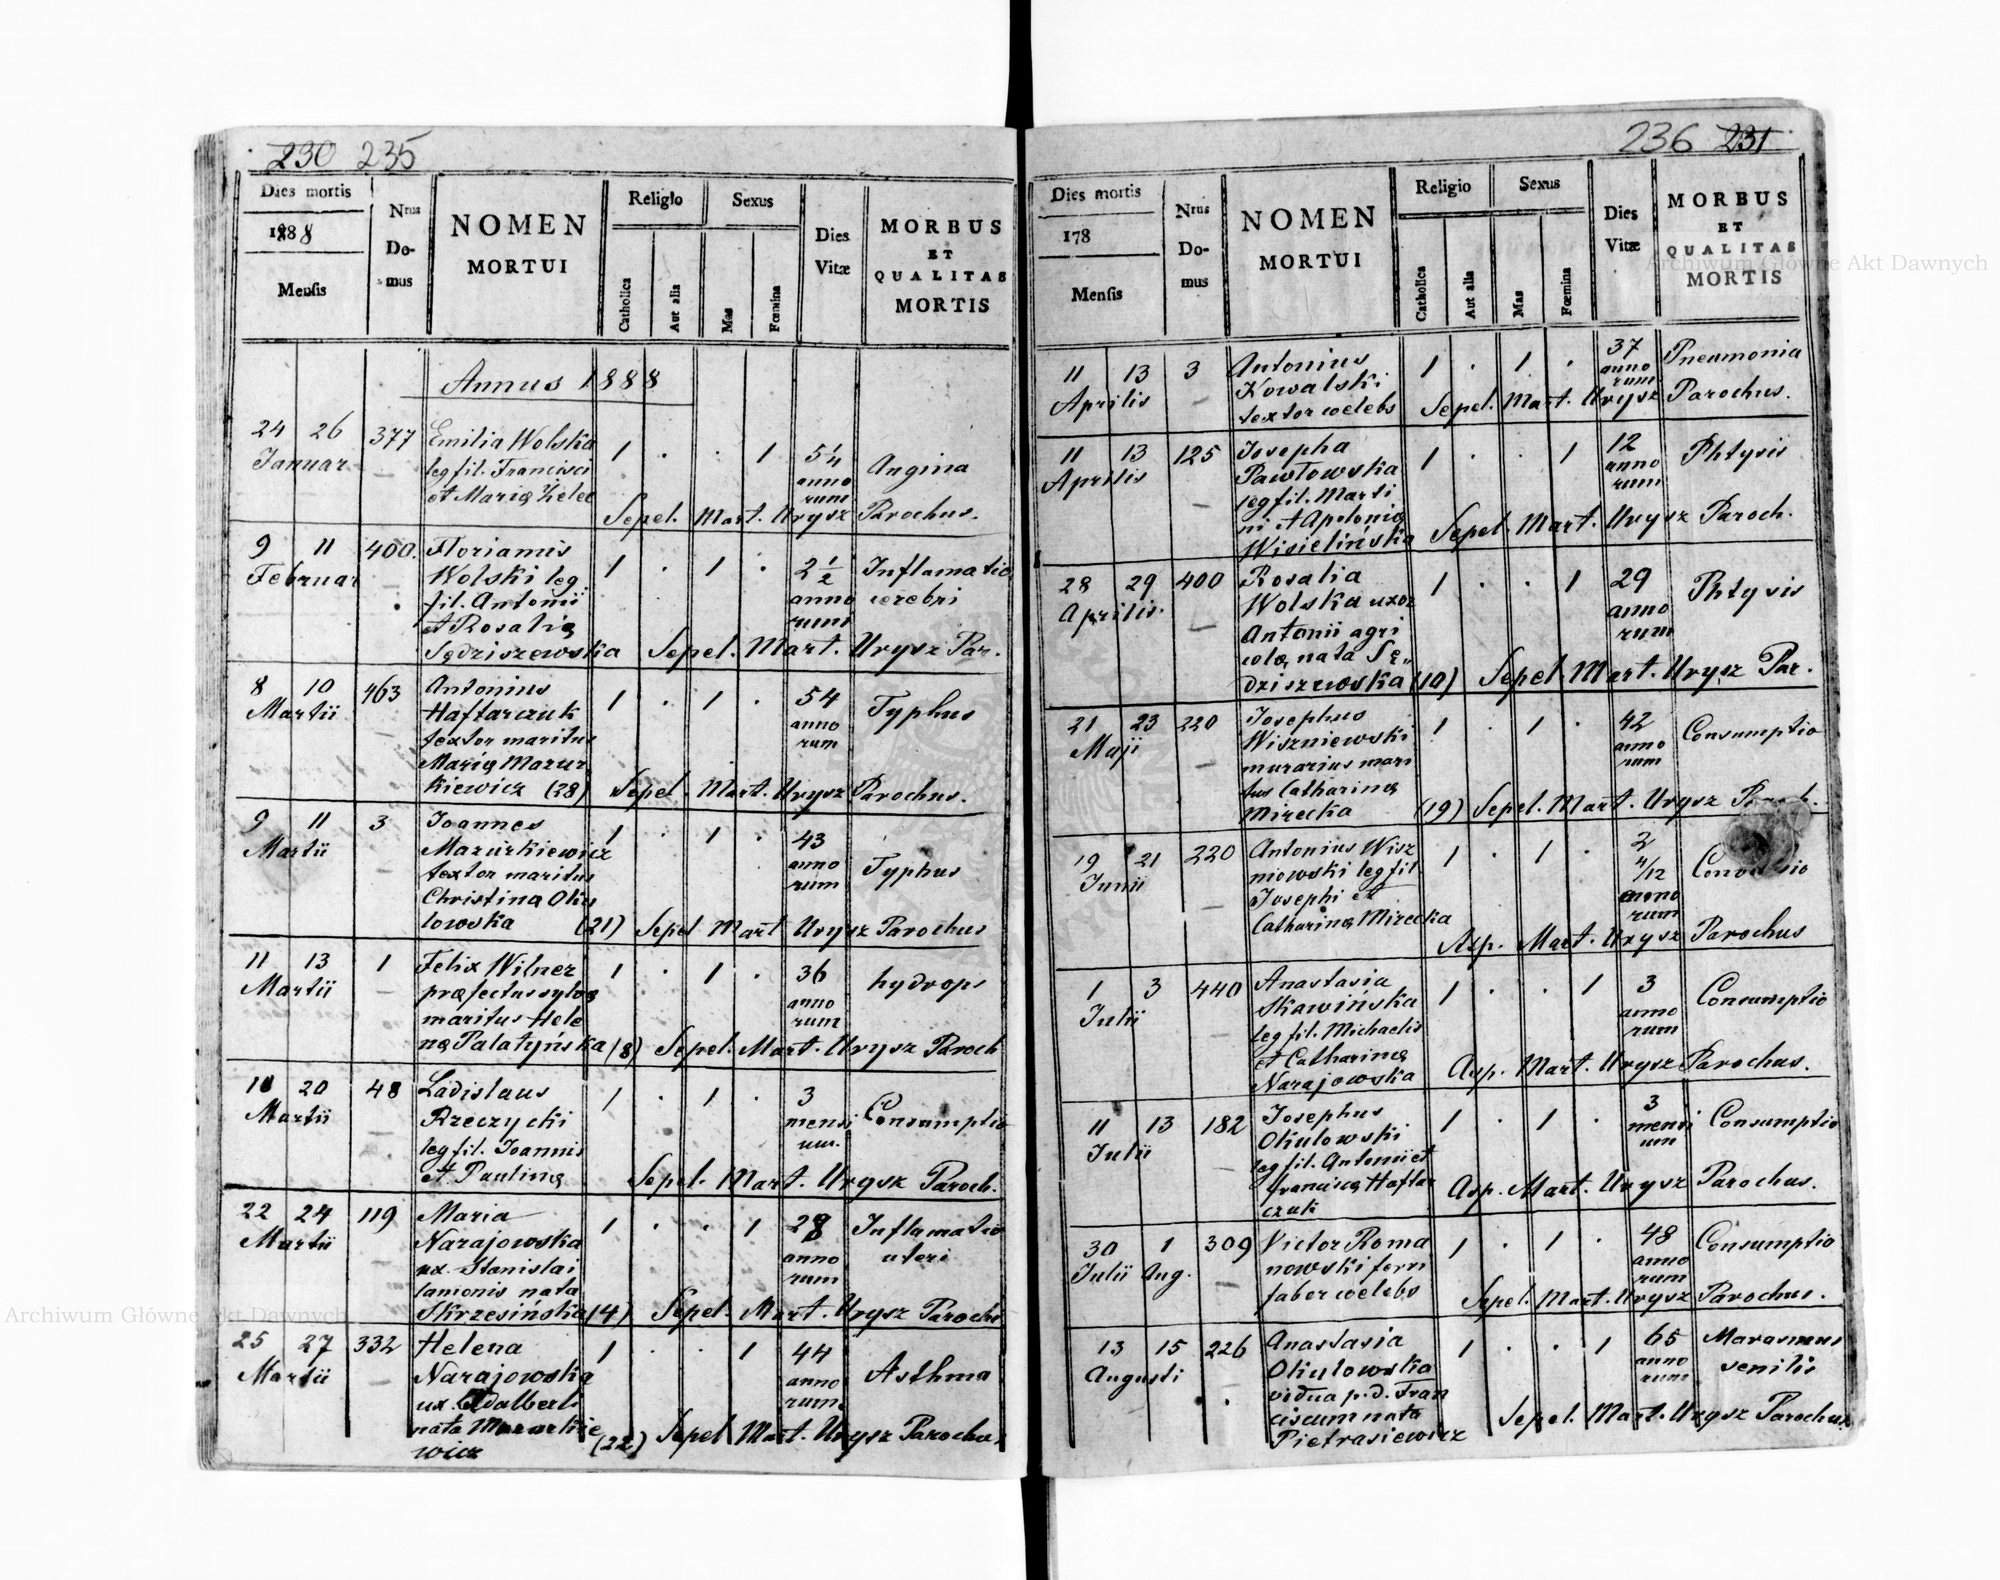 230 235
Dies mortis
1888
Mensis
Nrus
Do-
mus
NOMEN
MORTUI
Religio
Catholica
Aut alia
Sexus
Mas
Fœmina
Dies
Vitæ
MORBUS
ET
QUALITAS
MORTIS
Annus 1888
24 26 377 Emilia Wolska 1 . . 1 54 Angina
Januar legfil. Francisci anno
et Mariæ Zelec rum
Sepel. Mart. Urysz Parochus.
9 11 400. Florianus 1 . 1 . 2 1/2 Inflamatio
Februar Wolski leg. anno cerebri
fil. Antonii rum
et Rosaliæ
Sędziszewska Sepel. Mart. Urysz Par.
8 10 463 Antonius 1 . 1 . 54 Typhus
Martii Haftarczuk anno
textor maritus rum
Mariæ Mazur
kiewicz (28) Sepel. Mart. Urysz Parochus.
9 11 3 Joannes 1 . 1 . 43 Typhus
Martii Mazurkiewicz anno
textor maritus rum
Christinæ Oku
lowska (21) Sepel Mart Urysz Parochus
11 13 1 Felix Wilner 1 . 1 . 36 hydrops
Martii præfectus sylvæ anno
maritus Hele rum
næ Palatyńska (8) Sepel. Mart. Urysz Paroch
20 48 Ladislaus 1 . 1 . 3 Consumptio
Martii Rzeczycki mensi
legfil. Joannis um.
et Paulinæ
Sepel. Mart. Urysz Paroch.
22 24 119 Maria 1 . . 1 28 Inflamatio
Martii Narajowska anno uteri
ux. Stanislai rum
lanionis nata
Skrzesińska (4) Sepel. Mart. Urysz Paroch
25 27 332 Helena 1 . . 1 44 Asthma
Martii Narajowska anno
ux. Adalberti rum.
nata Mazurkie
wicz (22) Sepel Mart. Urysz Parochus
236 231
Dies mortis
178
Mensis
Nrus
Do-
mus
NOMEN
MORTUI
Religio
Catholica
Aut alia
Sexus
Mas
Fœmina
Dies
Vitæ
MORBUS
ET
QUALITAS
MORTIS
11 13 3 Antonius 1 . 1 . 37 Pneumonia
Aprilis Kowalski anno
textor celebs rum
Sepel. Mart. Urysz Parochus.
11 13 125 Josepha 1 . . 1 12 Phtysis
Aprilis Pawłowska anno
legfil. Marti rum
ni et Apoloniæ
Wisielińska Sepel. Mart. Urysz Paroch.
28 29 400 Rosalia 1 . . 1 29 Phtysis
Aprilis. Wolska uxor anno
Antonii agri rum
colæ, nata Sę„
dziszewska (10) Sepel. Mart. Urysz Par.
21 23 220 Josephus 1 . 1 . 42 Consumptio
Maji Wiszniewski anno
murarius mari rum
tus Catharinæ
Mirecka (19) Sepel. Mart. Urysz Paroch.
19 21 220 Antonius Wisz 1 . 1 . 2
Junii niowski legfil. 4/12
Josephi et anno
Catharinæ Mirecka rum
Asp. Mart. Urysz Parochus
1 3 440 Anastasia 1 . . 1 3 Consumptio
Julii Skawińska anno
legfil. Michaelis rum
et Catharinæ
Narajowska Asp. Mart. Urysz Parochus.
11 13 182 Josephus 1 . 1 . 3 Consumptio
Julii Okulowski mensi
legfil. Antonii et um
Franciscæ Haftar
czuk Asp. Mart. Urysz Parochus.
30 1 309 Victor Roma 1 . 1 . 48 Consumptio
Julii Aug. nowski ferri anno
faber celebs rum
Sepel. Mart. Urysz Parochus.
13 15 226 Anastasia 1 . . 1 65 Marasmus
Augusti Okulowska anno senilis
vidua p. d. Fran rum
ciscum nata
Pietrasiewicz Sepel. Mart. Urysz Parochus
Archiwum Główne Akt Dawnych
Archiwum Główne Akt Dawnych